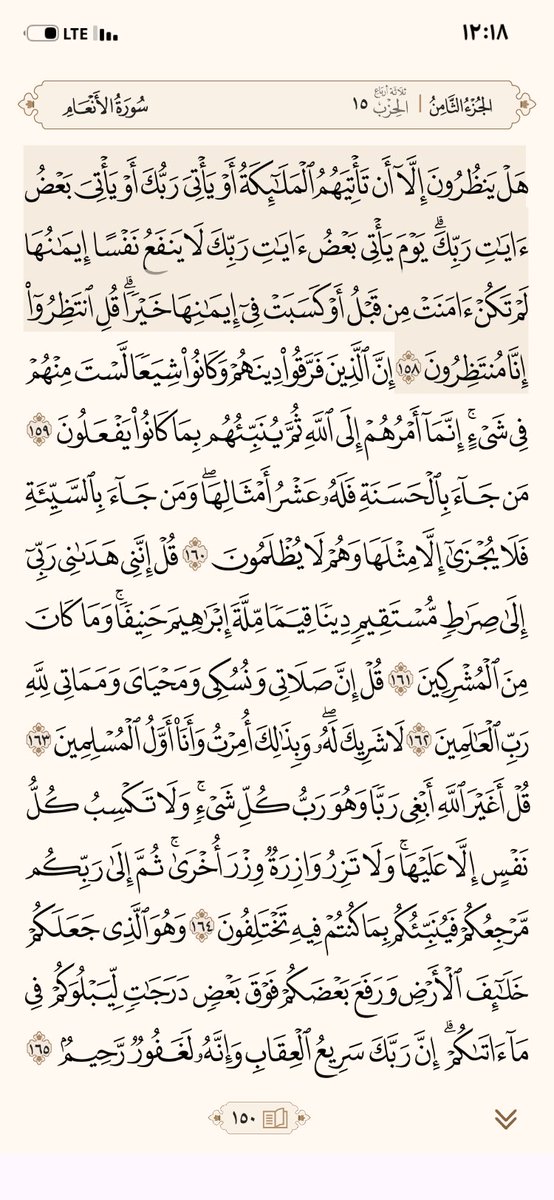 LTE ١٢:١٨
الجُزءُ الثَّامِنُ | ثلاثة أرباع الحِزْب ١٥ سُورَةُ الأَنْعَام
هَلۡ يَنظُرُونَ إِلَّآ أَن تَأۡتِيَهُمُ ٱلۡمَلَٰٓئِكَةُ أَوۡ يَأۡتِيَ رَبُّكَ أَوۡ يَأۡتِيَ بَعۡضُ
ءَايَٰتِ رَبِّكَۗ يَوۡمَ يَأۡتِي بَعۡضُ ءَايَٰتِ رَبِّكَ لَا يَنفَعُ نَفۡسًا إِيمَٰنُهَا
لَمۡ تَكُنۡ ءَامَنَتۡ مِن قَبۡلُ أَوۡ كَسَبَتۡ فِيٓ إِيمَٰنِهَا خَيۡرٗاۗ قُلِ ٱنتَظِرُوٓاْ
إِنَّا مُنتَظِرُونَ ١٥٨ إِنَّ ٱلَّذِينَ فَرَّقُواْ دِينَهُمۡ وَكَانُواْ شِيَعٗا لَّسۡتَ مِنۡهُمۡ
فِي شَيۡءٍۚ إِنَّمَآ أَمۡرُهُمۡ إِلَى ٱللَّهِ ثُمَّ يُنَبِّئُهُم بِمَا كَانُواْ يَفۡعَلُونَ ١٥٩
مَن جَآءَ بِٱلۡحَسَنَةِ فَلَهُۥ عَشۡرُ أَمۡثَالِهَاۖ وَمَن جَآءَ بِٱلسَّيِّئَةِ
فَلَا يُجۡزَىٰٓ إِلَّا مِثۡلَهَا وَهُمۡ لَا يُظۡلَمُونَ ١٦٠ قُلۡ إِنَّنِي هَدَىٰنِي رَبِّيٓ
إِلَىٰ صِرَٰطٖ مُّسۡتَقِيمٖ دِينٗا قِيَمٗا مِّلَّةَ إِبۡرَٰهِيمَ حَنِيفٗاۚ وَمَا كَانَ
مِنَ ٱلۡمُشۡرِكِينَ ١٦١ قُلۡ إِنَّ صَلَاتِي وَنُسُكِي وَمَحۡيَايَ وَمَمَاتِي لِلَّهِ
رَبِّ ٱلۡعَٰلَمِينَ ١٦٢ لَا شَرِيكَ لَهُۥۖ وَبِذَٰلِكَ أُمِرۡتُ وَأَنَا۠ أَوَّلُ ٱلۡمُسۡلِمِينَ ١٦٣
قُلۡ أَغَيۡرَ ٱللَّهِ أَبۡغِي رَبّٗا وَهُوَ رَبُّ كُلِّ شَيۡءٖۚ وَلَا تَكۡسِبُ كُلُّ
نَفۡسٍ إِلَّا عَلَيۡهَاۚ وَلَا تَزِرُ وَازِرَةٞ وِزۡرَ أُخۡرَىٰۚ ثُمَّ إِلَىٰ رَبِّكُم
مَّرۡجِعُكُمۡ فَيُنَبِّئُكُم بِمَا كُنتُمۡ فِيهِ تَخۡتَلِفُونَ ١٦٤ وَهُوَ ٱلَّذِي جَعَلَكُمۡ
خَلَٰٓئِفَ ٱلۡأَرۡضِ وَرَفَعَ بَعۡضَكُمۡ فَوۡقَ بَعۡضٖ دَرَجَٰتٖ لِّيَبۡلُوَكُمۡ فِي
مَآ ءَاتَىٰكُمۡۗ إِنَّ رَبَّكَ سَرِيعُ ٱلۡعِقَابِ وَإِنَّهُۥ لَغَفُورٞ رَّحِيمُۢ ١٦٥
١٥٠